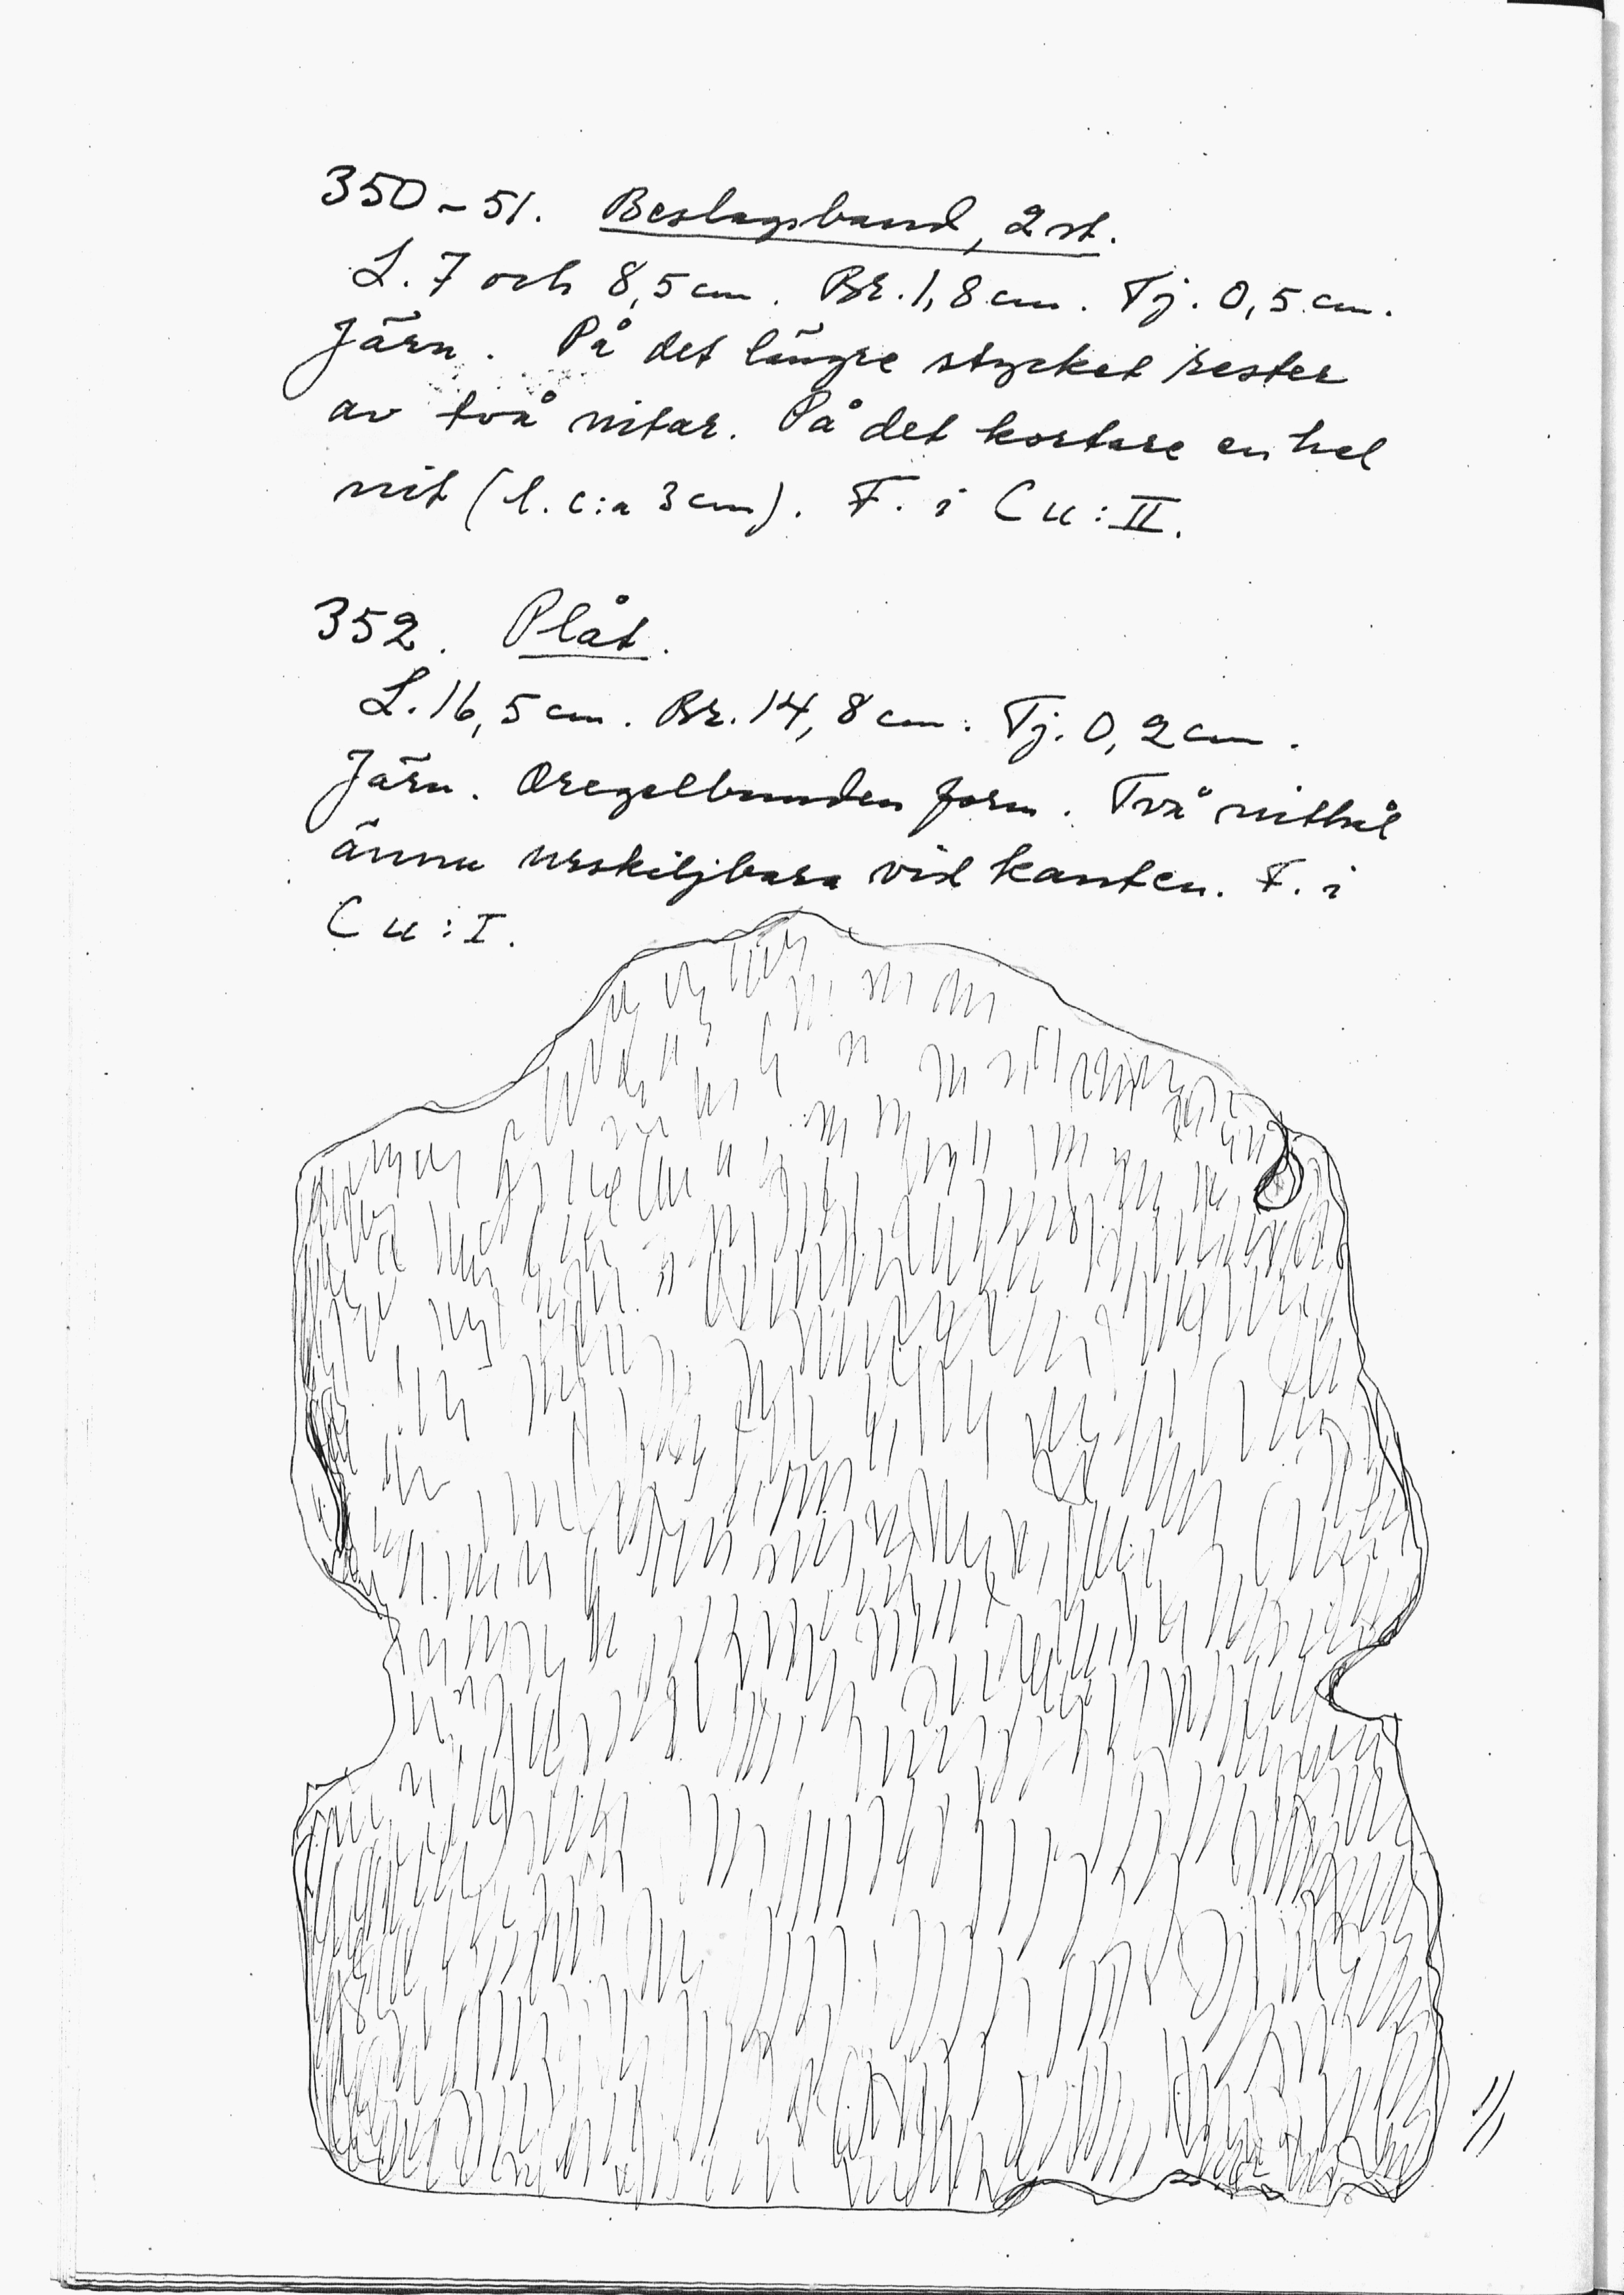 350-51. Beslagsband, 2 st.
L. 7 och 8,5 cm. Br. 1,8 cm. Tj. 0,5 cm.
Järn. På det längre stycket rester
av två nitar. På det kortare en hel
nit (l. c:a 3 cm). F. i C u : II.
352. Plåt.
L. 16,5 cm. Br. 14,8 cm. Tj. 0,2 cm.
Järn. Oregelbunden form. Två nithål
ännu urskiljbara vid kanten. F. i
C u : I.
1/1